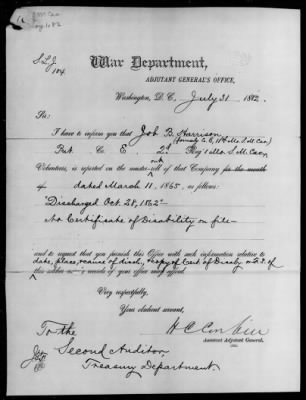 S.L.J.
104
War Department,
ADJUTANT GENERAL'S OFFICE,
Washington, D. C., July 31 1882.
Sir:
I have to inform you that Job B. Harrison
Pvt. Co. E. 2d Reg't Mo. S. M. Cav.
Volunteers, is reported on the muster-out roll of that Company for the month
of dated March 11, 1865, as follows:
"Discharged Oct. 28, 1862"
No Certificate of Disability on file
and to request that you furnish this Office with such information relative to
date, place, & cause of disch, copy of Cert of Disab of
this soldier as the records of your office may afford.
Very respectfully,
Your obedient servant,
H C Corbin
Assistant Adjutant General.
To the
Second Auditor
Treasury Department.